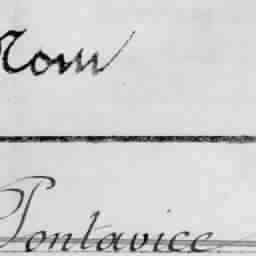 Nom
Pontavice